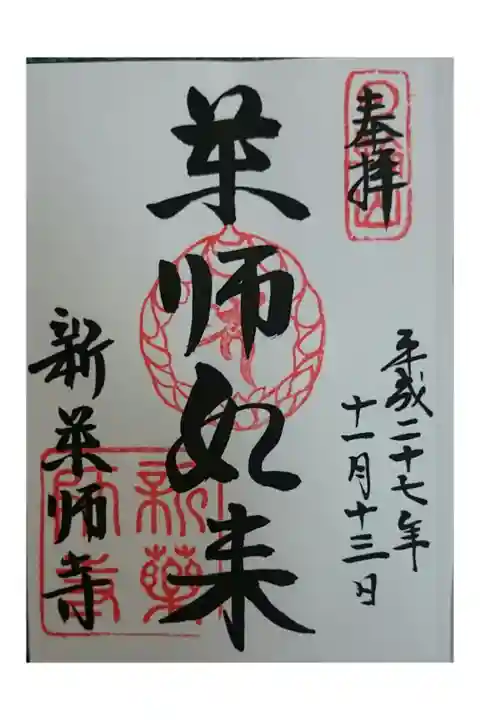 奉拝
平成二十七年
十一月十三日
薬师如来
新薬师寺
新薬
師寺